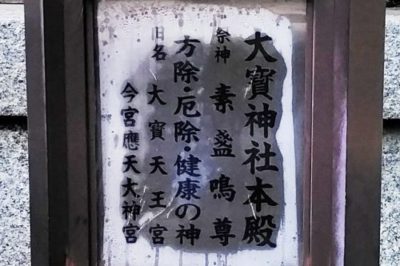 大寳神社本殿
祭神 素盞鳴尊
方除・厄除・健康の神
旧名 大寳天王宮
今宮應天大神宮